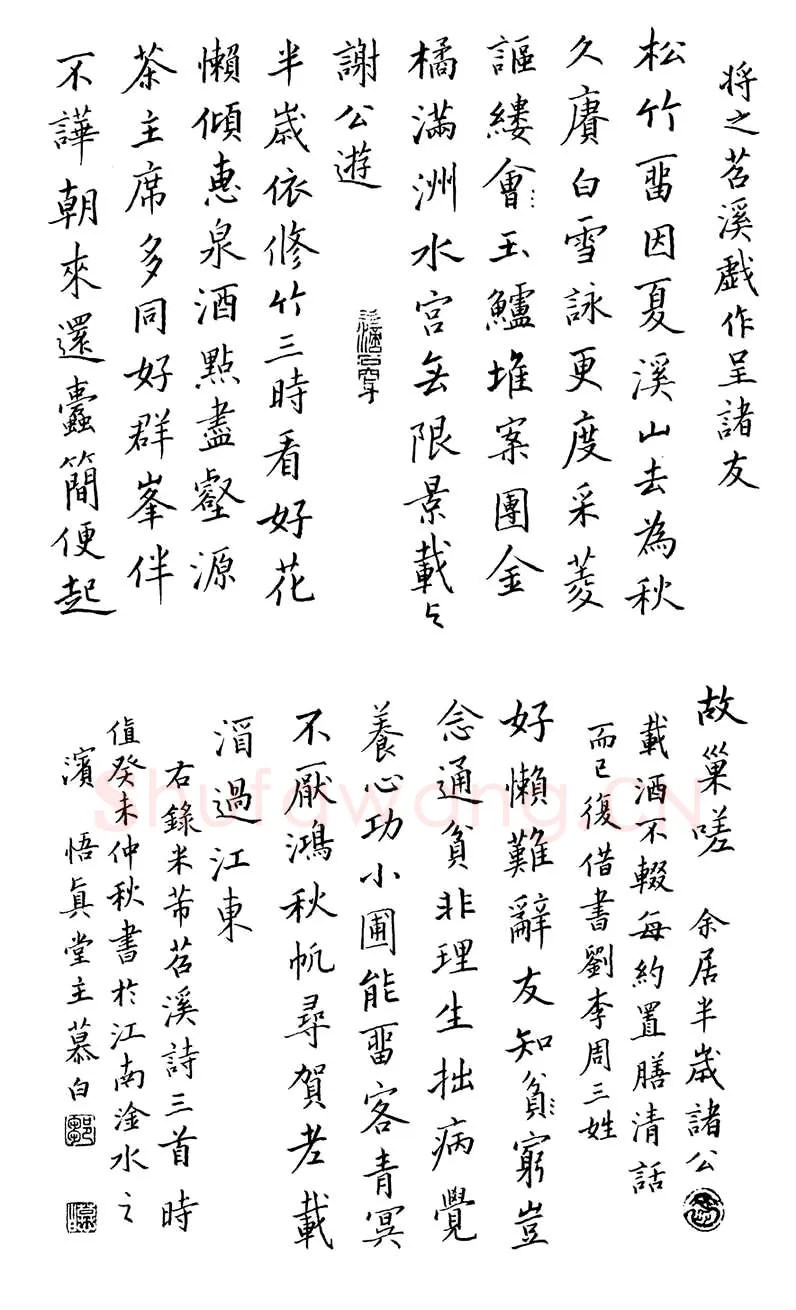 将之苕溪戱作呈諸友
松竹畱因夏溪山去為秋
久賡白雪詠更度采菱
謳縷會⋮玉鱸堆案團金
橘滿洲水宮無限景載与
謝公遊
半歲依修竹三時看好花
懶傾惠泉酒點盡壑源
茶主席多同好群峯伴
不譁朝來還蠹簡便起
故巢嗟 余居半歲諸公
載酒不輟每約置膳清話
而已復借書劉李周三姓
好懶難辭友知貧⋮窮豈
念通貧非理生拙病覺
養心功小圃能畱客青冥
不厭鴻秋帆尋賀老載
酒過江東
右錄米芾苕溪詩三首時
值癸未仲秋書於江南淦水之
濱 悟眞堂主慕白
Shufawang.CN